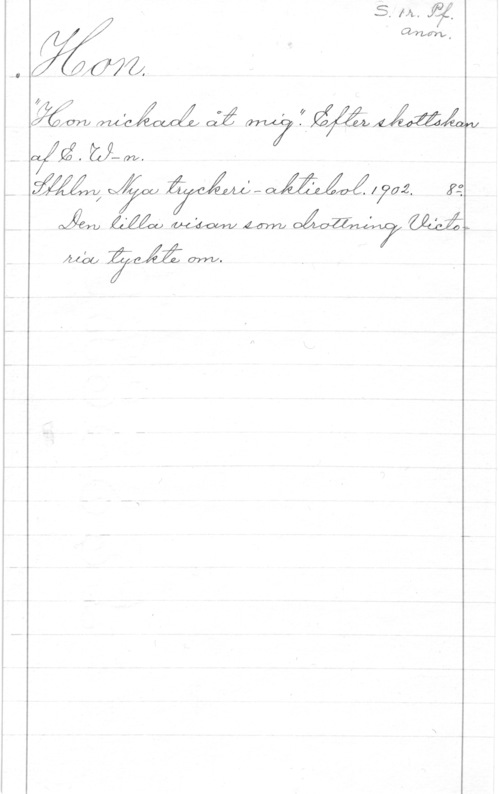 S. tr. Pf.
anon.
Hon.
"Hon nickade åt mig". Efter skottskan
af E. W-n.
Sthlm, Nya tryckeri-aktiebol. 1902. 8º.
Den lilla visan som drottning Victo-
ria tyckte om.